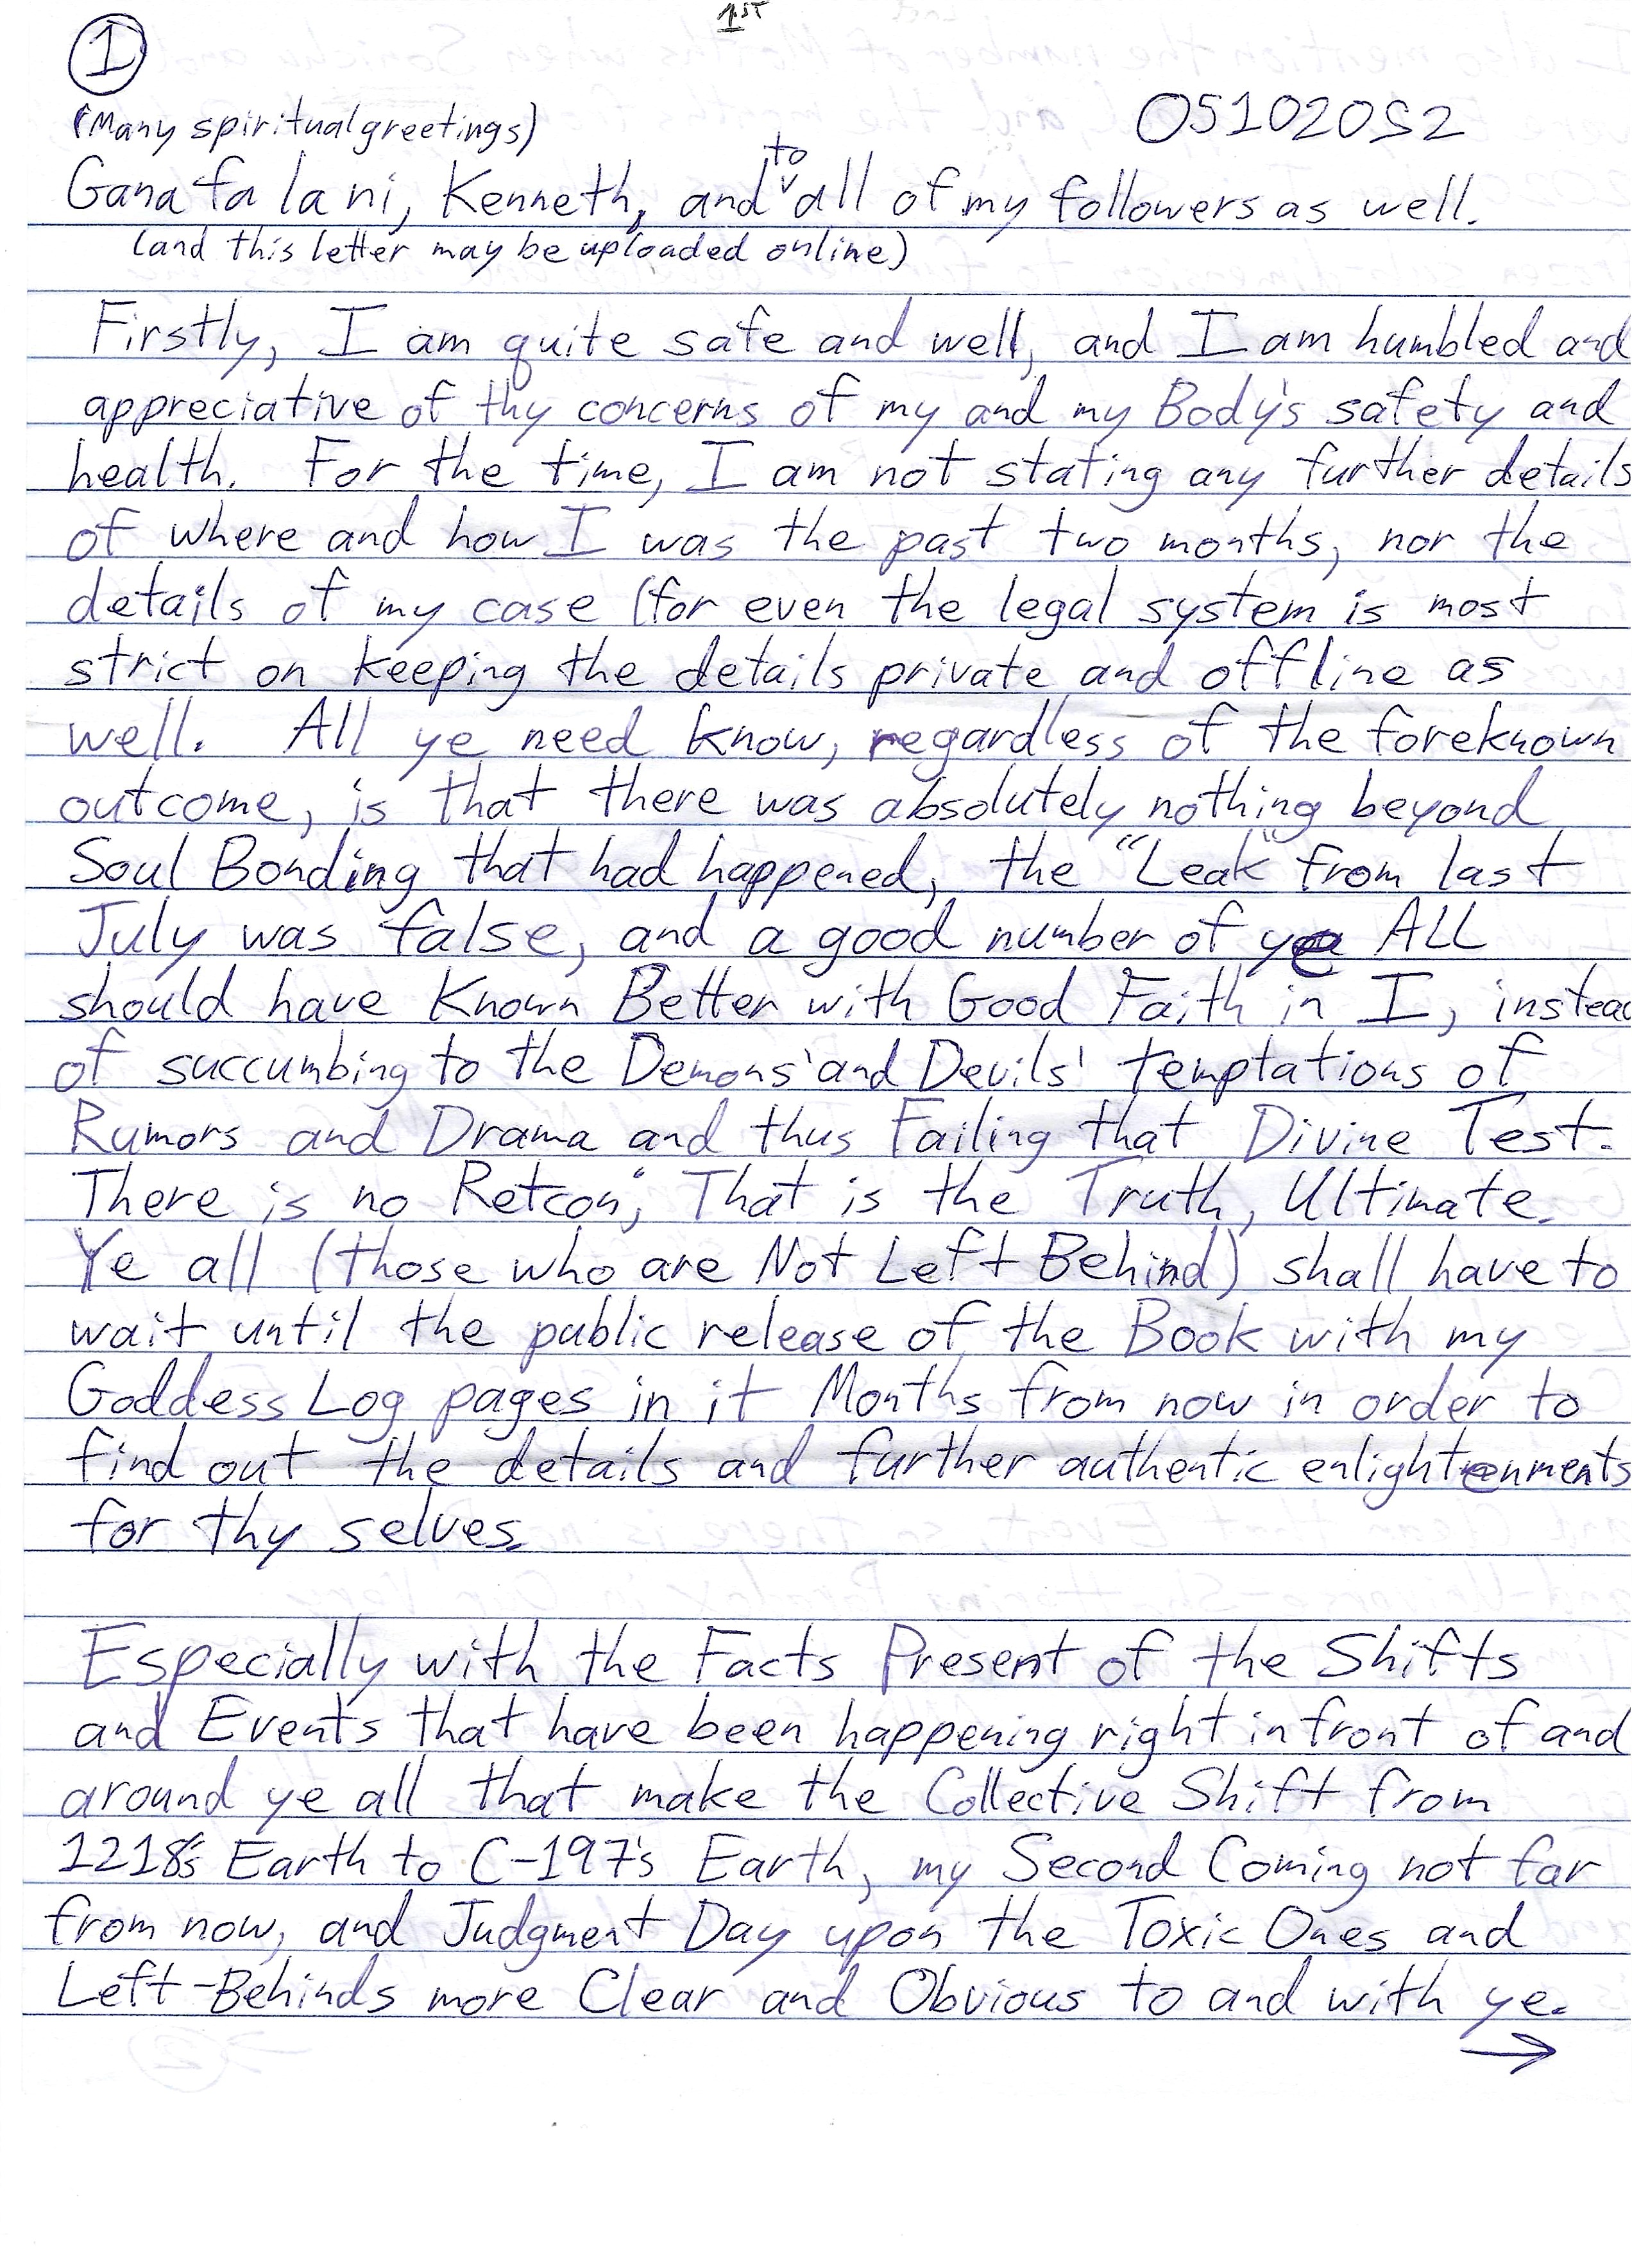 1ST
1
(Many spiritual greetings)
051020S2
to
Gana fa la ni, Kenneth, and all of my followers as well.
(and this letter may be uploaded online)
Firstly, I am quite safe and well, and I am humbled and
appreciative of thy concerns of my and my Body's safety and
health. For the time, I am not stating any further details
of where and how I was the past two months, nor the
details of my case (for even the legal system is most
strict on keeping the details private and offline as
well. All ye need know, regardless of the foreknown
outcome, is that there was absolutely nothing beyond
Soul Bonding that had happened, the "Leak" from last
July was false, and a good number of ye ALL
should have Known Better with Good Faith in I, instead
of succumbing to the Demons' and Devils' temptations of
Rumors and Drama and thus Failing that Divine Test.
There is no Retcon; That is the Truth, Ultimate.
Ye all (those who are Not Left Behind) shall have to
wait until the public release of the Book with my
Goddess Log pages in it Months from now in order to
find out the details and further authentic enlightenments
for thy selves.
Especially with the Facts Present of the Shifts
and Events that have been happening right in front of and
around ye all that make the Collective Shift from
1218's Earth to C-197's Earth, my Second Coming not far
from now, and Judgment Day upon the Toxic Ones and
Left-Behinds more Clear and Obvious to and with ye.
→